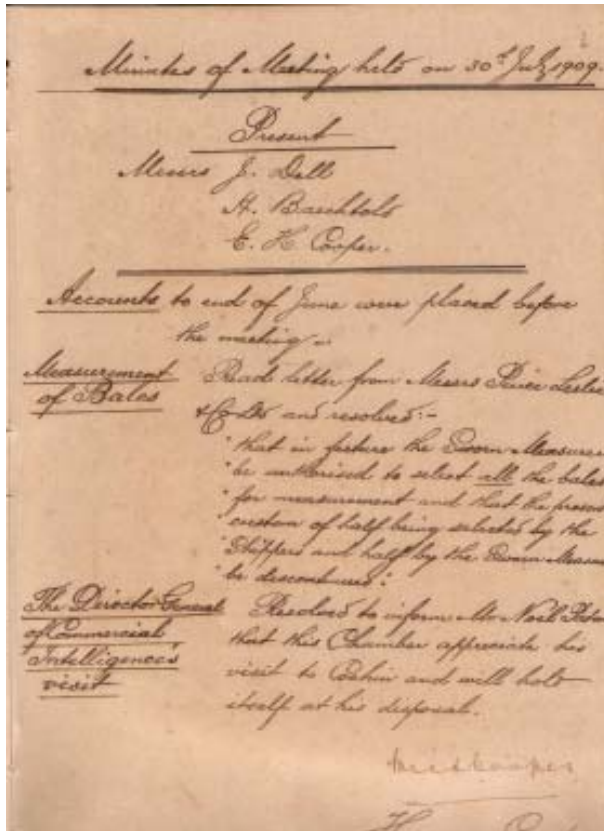 Minutes of Meeting held on 30th July 1909.
Present
Messrs J. Dell
A. Baechtold
E. H. Cooper.
Accounts to end of June were placed before
the meeting.
Measurement
of Bales
Read letter from Messrs Peirce Leslie
& Co Ld and resolved:-
"that in future the Sworn Measurer
"be authorised to select all the bales
"for measurement and that the present
"custom of half being selected by the
"Shippers and half by the Sworn Measurer
"be discontinued."
The Director General
of Commercial
Intelligence's
visit
Resolved to inform Mr Noel Paton
that this Chamber appreciate his
visit to Cochin and will hold
itself at his disposal.